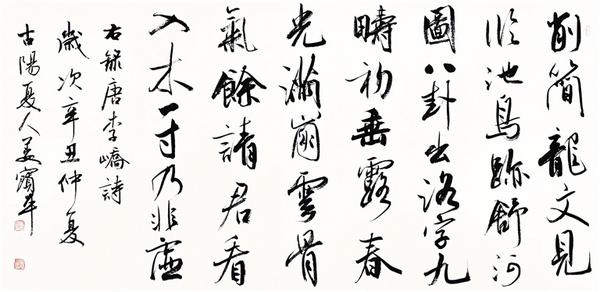 削簡龍文見
臨池鳥跡舒河
圖八卦出洛字九
疇初垂露春
光滿崩雲骨
氣餘請君看
入木一寸乃非虛
右錄唐李嶠詩
歲次辛丑仲夏
古陽夏人姜